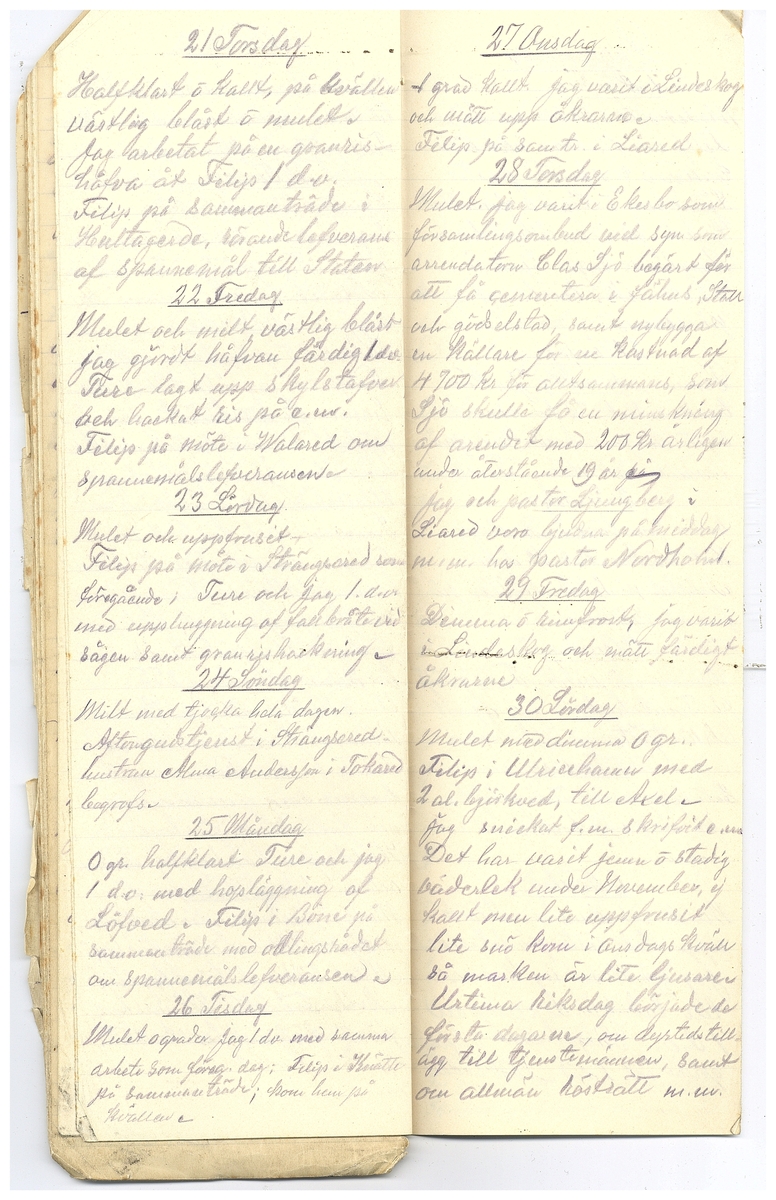 21 Torsdag
Halfklart ö kallt, på kvällen
västlig blåst ö mulet.
Jag arbetat på en granris-
håfva åt Filip 1 d.v.
Filip på sammanträde i
Hultagerde, rörande lefverans
af spannemål till Staten
22 Fredag
Mulet och milt västlig blåst
jag gjordt håfvan färdig 1 d.v.
Ture lagt upp skylstafver
och hackat ris på e.m.
Filip på möte i Walared om
spannemålslefveransen.
23 Lördag
Mulet och uppfruset
Filip på möte i Strängsered som
föregående; Ture och jag 1. d.v
med upphuggning af fallbråte vid
sågen samt granrishackning.
24 Söndag
Milt med tjocka hela dagen.
Aftongudstjenst i Strängsered
hustrun Alma Andersson i Tokared
begrofs.
25 Måndag
0 gr. halfklart Ture och jag
1 d.v. med hopläggning af
Löfved. Filip i Böne på
sammanträde med odlingsrådet
om spannemålslefveransen.
26 Tisdag
Mulet 0 grader jag 1 dv med samma
arbete som föreg. dag; Filip i
på sammanträde; kom hem på
kvällen.
27 Onsdag
1 grad kallt. jag varit i Linderskog
och mätt upp åkrarne.
Filip på samtr. i Liared.
28 Torsdag
Mulet. jag varit i Ekesbo som
församlingsombud ved syn som
arrendatorn Clas Sjö begärt för
att få cementera i fähus, Stall
och gödselstad, samt nybygga
en källare för en kostnad af
4700 kr för alltsammans, som
Sjö skulle få en minskning
af arendet med 200 kr årligen
under återstående 19 år
jag och pastor Ljungberg i
Liared voro bjudna på middag
m.m. hos pastor Nordholm.
29 Fredag
Dimma ö rimfrost, jag varit
i Lindeskog och mätt färdigt
åkrarne
30 Lördag
Mulet med dimma 0 gr.
Filip i Ulricehamn med
2 al. björkved, till Axel.
jag snickat f.m. skrifvit e.m
Det har varit jemn ö stadig
väderlek under November, ej
kallt men lite uppfruset
lite snö kom i Onsdags kväll
så marken är lite ljusare.
Urtima riksdag började de
första dagarne, om dyrtidstill-
ägg till tjenstemännen, samt
om allmän röstsätt m.m.